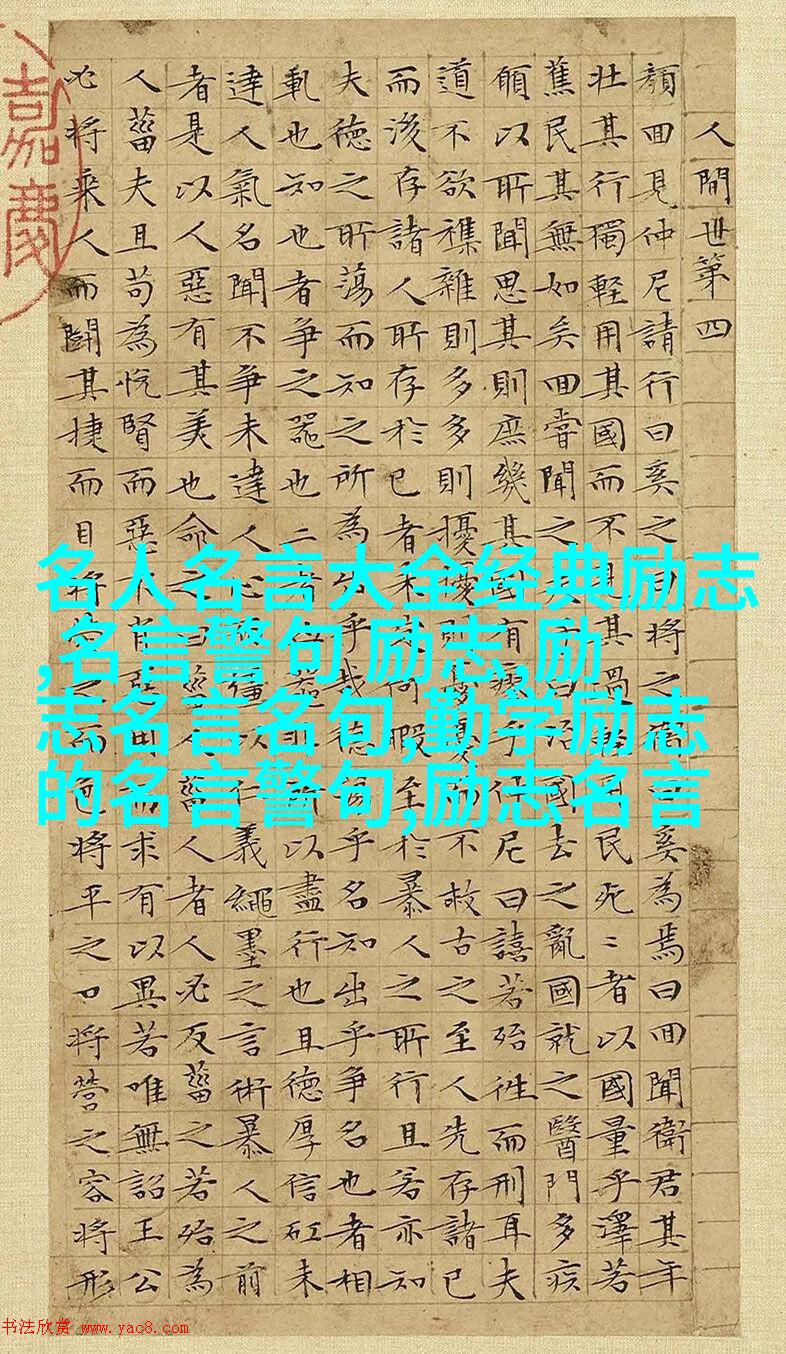 人間世第四
顏回見仲尼請行曰奚之曰將之奚為焉曰回聞衛君其年
壯其行獨輕用其國而不見其過輕民死〻者以國量乎澤若
蕉民其無如矣回嘗聞之治國去之亂國就之醫門多疾
願以所聞思其則庶幾其國有瘳乎仲尼曰譆若殆往而刑耳夫
道不欲襍雜則多多則擾擾則憂而不救古之至人先存諸已
而後存諸人所存於已者未何暇至於暴人之所行且若亦知
夫德之所蕩而知之所為出乎哉德乎名知出乎爭名也者相
軋也知也者爭之器也二者以盡行也且德厚信矼未
達人氣名聞不爭未達人心彊以仁義繩墨之言術暴人之前
者是以人惡有其美也命之曰菑人者人必反菑之若殆為
人菑夫且苟為悅賢而惡不肖惡而求有以異若唯無詔王公
必將乘人而鬭其捷而目將之而色將平之口將營之容將形
嘉慶
名人名言大全经典励志
,名言警句 励志,励
志名言名句,勤学励志
的名言警句,励志名言
书法欣赏 www.yac8.com